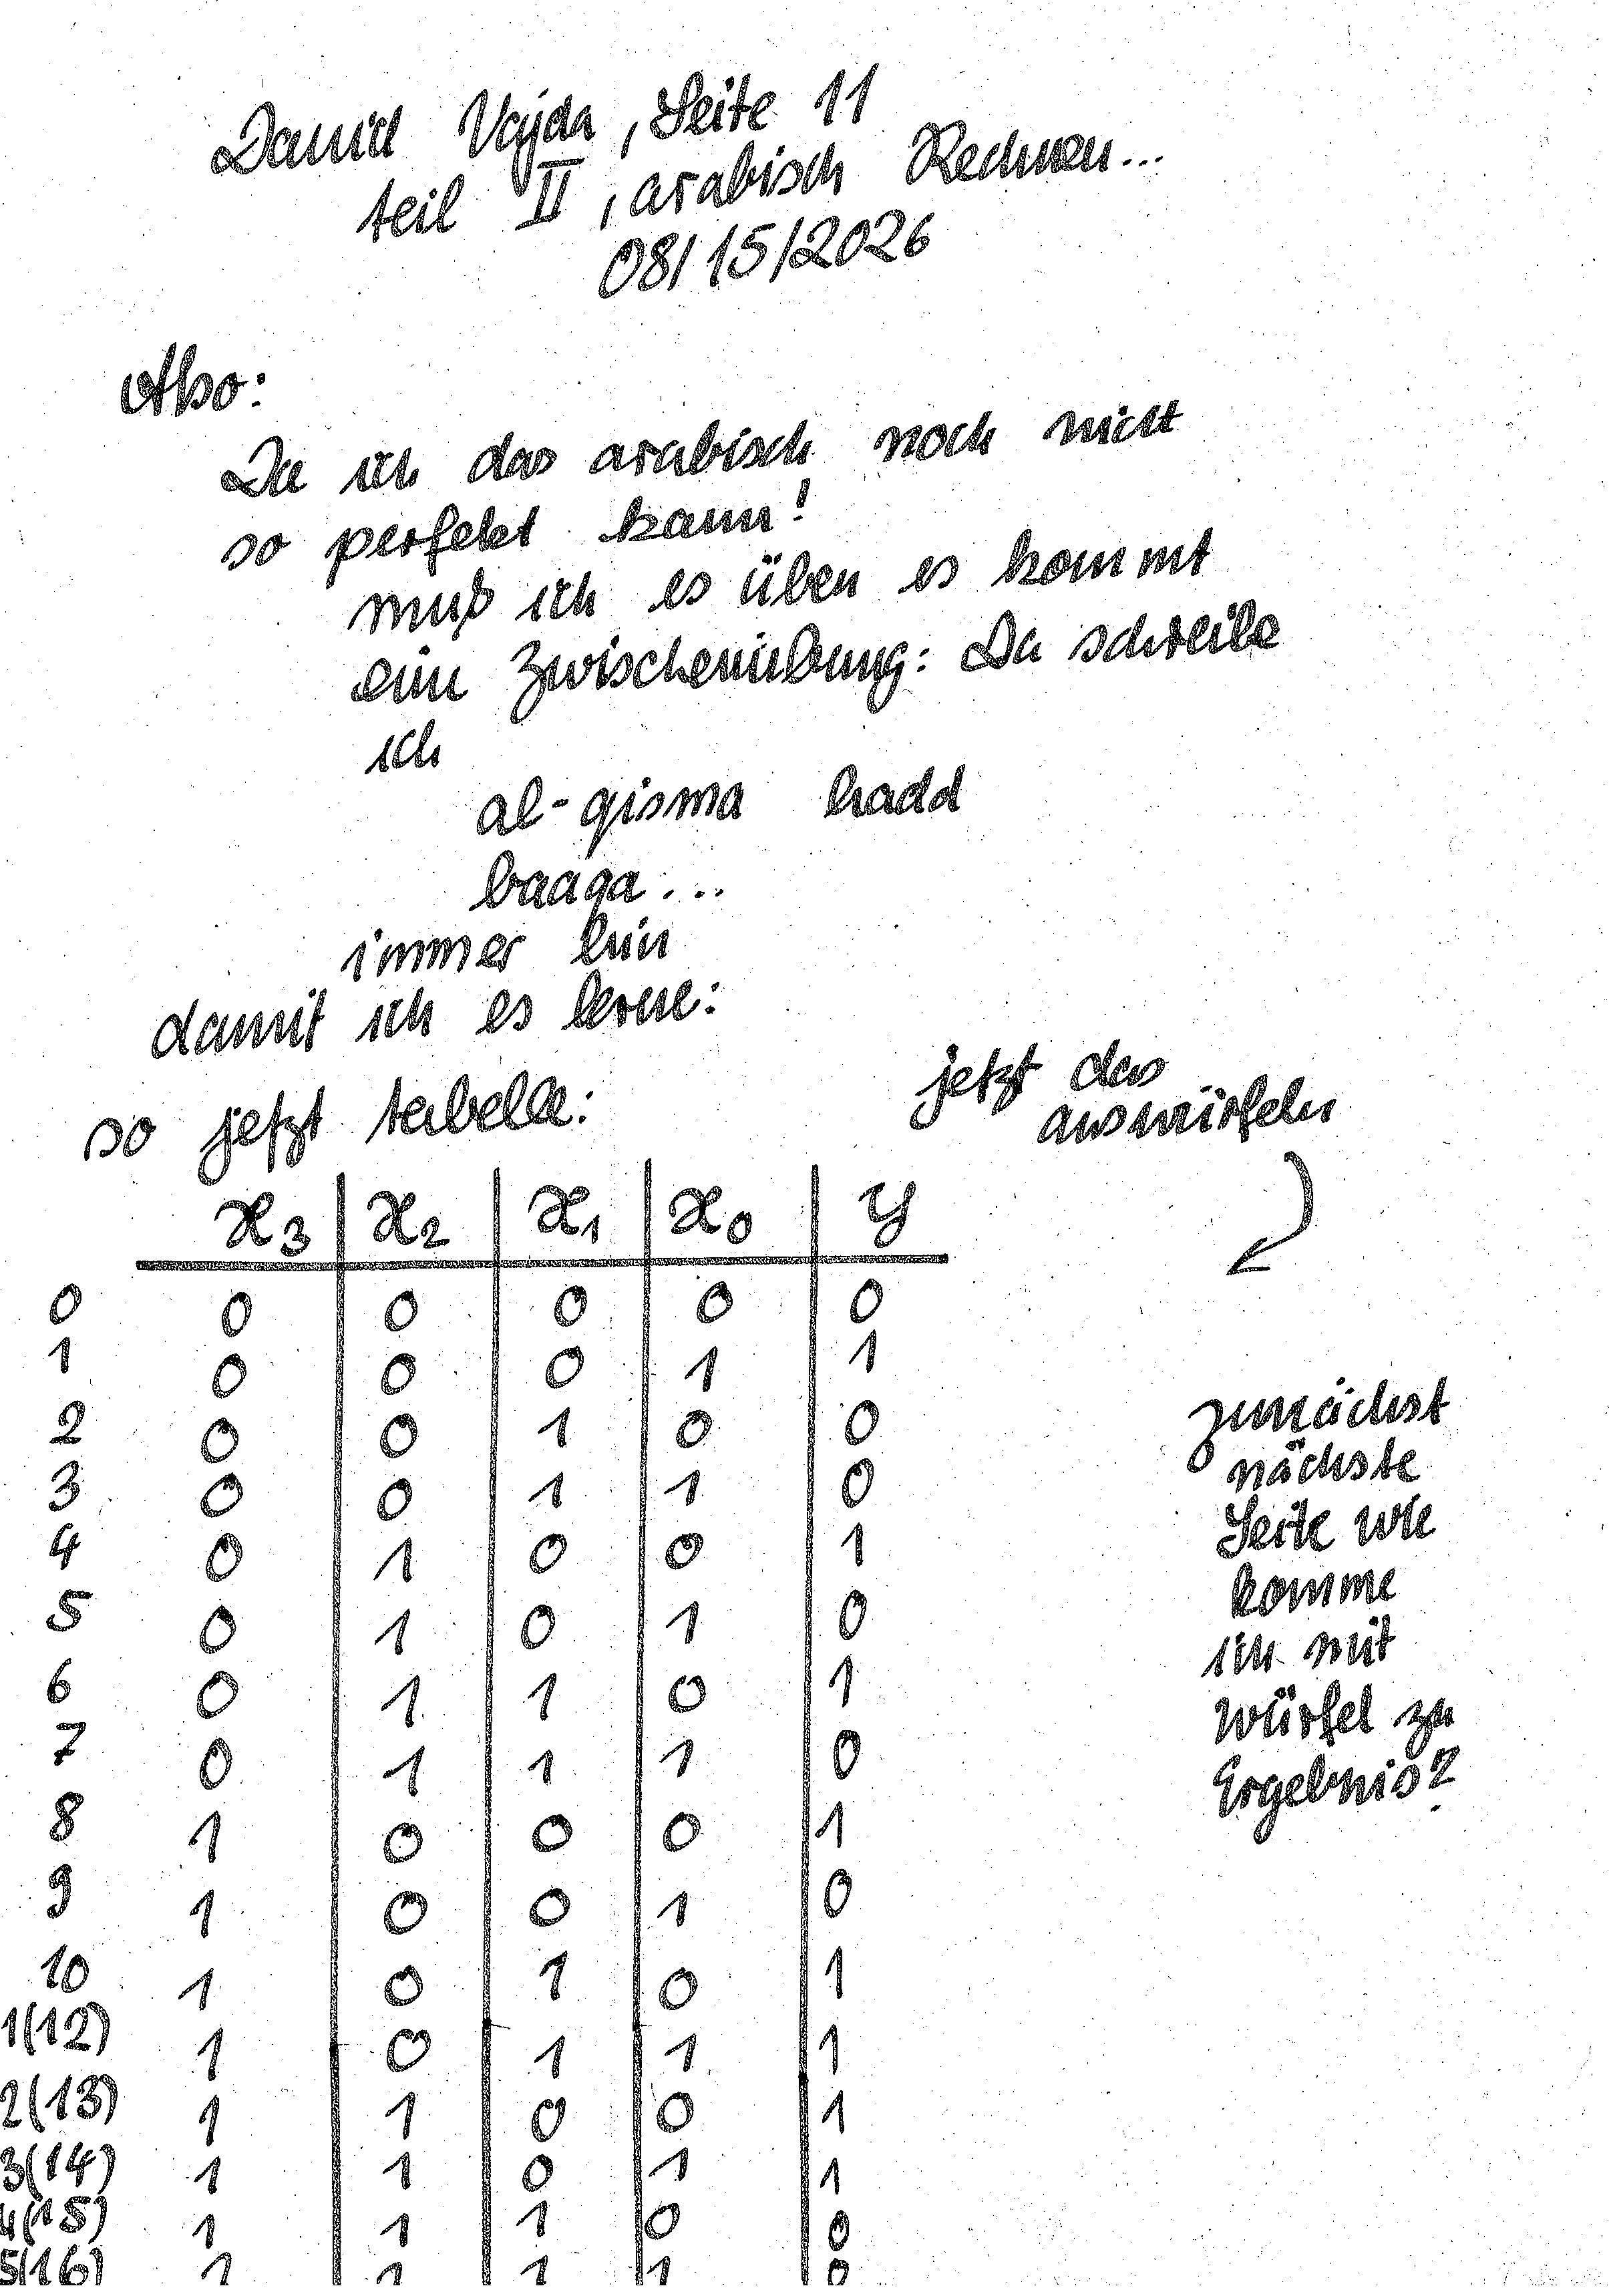 Daniel Vajda, Seite 11
teil II, arabisch Rechnen...
08/15/2026
Also:
Da ich das arabisch noch nicht
so perfekt kann!
muß ich es üben es kommt
eine Zwischenübung: Da schreibe
ich
al-qisma hadd
baaqa...
immer hin
damit ich es lerne:
so jetzt tabelle:
jetzt das
auswürfeln
x3 x2 x1 x0 y
0 0 0 0 0 0
1 0 0 0 1 1
2 0 0 1 0 0
3 0 0 1 1 0
4 0 1 0 0 1
5 0 1 0 1 0
6 0 1 1 0 1
7 0 1 1 1 0
8 1 0 0 0 1
9 1 0 0 1 0
10 1 0 1 0 1
1(12) 1 0 1 1 1
2(13) 1 1 0 0 1
3(14) 1 1 0 1 1
4(15) 1 1 1 0 0
5(16) 1 1 1 1 0
zunächst
nächste
Seite wie
komme
ich mit
würfel zu
Ergebnis?